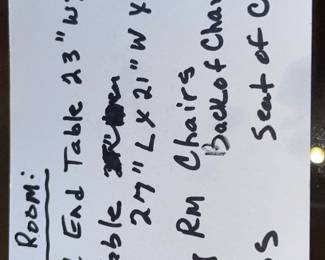 Room:
End Table 23"W
able
27"L x 21"W x
RM Chairs
Back of Chai
Seat of C
s